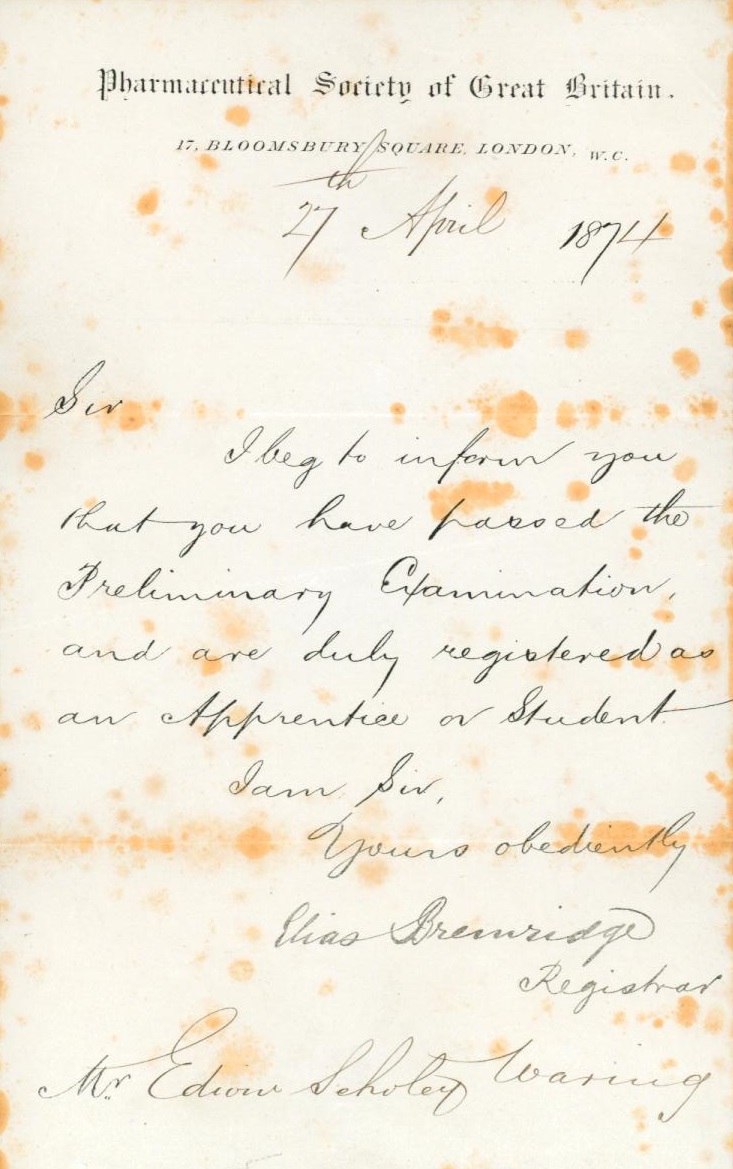 Pharmaceutical Society of Great Britain.
17, BLOOMSBURY SQUARE, LONDON, W.C.
27th April 1874
Sir
I beg to inform you
that you have passed the
Preliminary Examination,
and are duly registered as
an Apprentice or Student.
I am Sir,
Yours obediently
Elias Bremridge
Registrar
Mr Edwin Scholey Waring